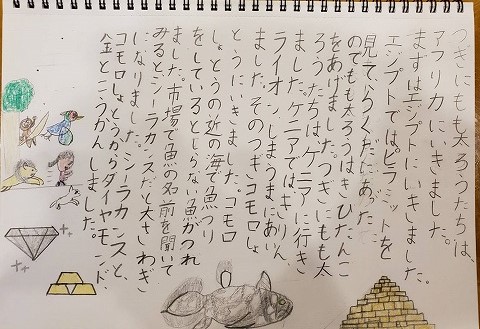 つぎにもも太ろうたちは、
アフリカにいきました。
まずはエジプトにいきました。
エジプトではピラミットを
見て、らくだにあった
のでもも太ろうはきびだんご
をあげました。つぎにもも太
ろうたちはケニアに行き
ました。ケニアではきりん、
ライオン、しまうまにあい
ました。そのつぎコモロしょ
とうにいきました。コモロ
しょとうの近の海で魚つり
をしているとしらない魚がつれ
ました。市場で魚の名前を聞いて
みるとシーラカンスだと大さわぎ
になりました。シーラカンスと、
コモロしょとうからダイヤモンド、
金とこうかんしました。